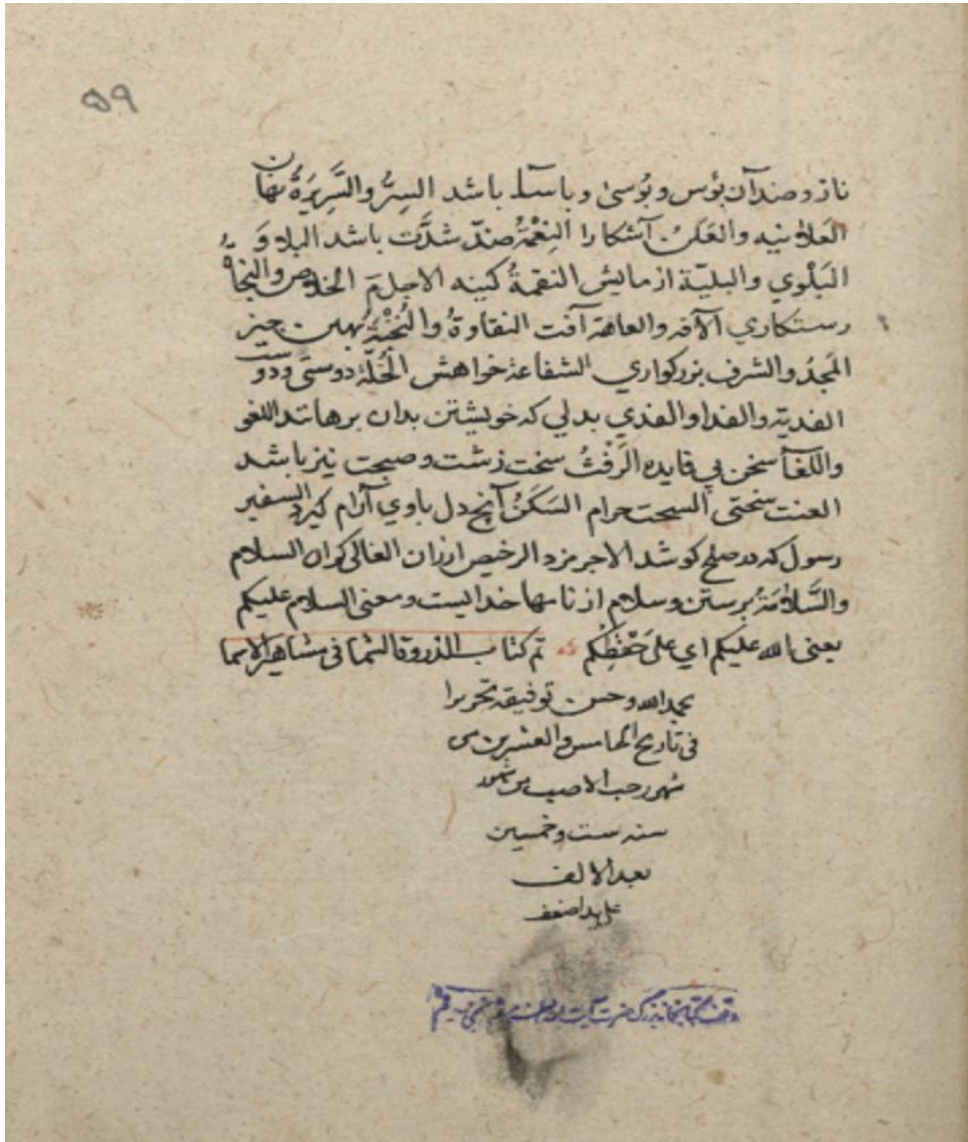 ۵۹
ناز و ضد آن بؤس و بُوسیٰ و باسآ باشد السِرُّ والسَّرِیرَةُ نهان
العلانیه والعَلَن آشکارا النِعْمَةُ ضدّ شدَّت باشد البلاء و
البَلْوي والبلیّة ازمایش النقمةُ کینه الخلاص والنجاةُ
رستکاري الآفه والعاهة آفت النقاوةُ والنُخْبَةُ بهین چیز
المَجدُ والشرف بزرکواري الشفاعة خواهش الخُلَّة دوستی و دوست
الفدیة والفدا والفدي بدلي که خویشتن بدان برهانند اللغو
واللغا سخن بي فایده الرَفَثُ سخت زشت و صحبت نیز باشد
العنت سختی السحت حرام السَکَنُ آنچ دل باوي آرام کیرد السفیر
رسول که در صلح کوشد الاجر مزد الرخیص ارزان الغالی کران السلام
والسَّلامَةُ برستن و سلام از نامها خدایست و معنی السلام علیکم
یعنی الله علیکم اي علیَ حفظِکم تم کتاب الذروة الشما فی مشاهیر الاسما
بحمد الله و حسن توفیقه تحریرا
فی تاریخ الخامس والعشرین من
شهر رجب الاصب من شهور
سنه ست و خمسین
بعد الالف
وقف کتابخانه بزرک حضرت آیت الله قم